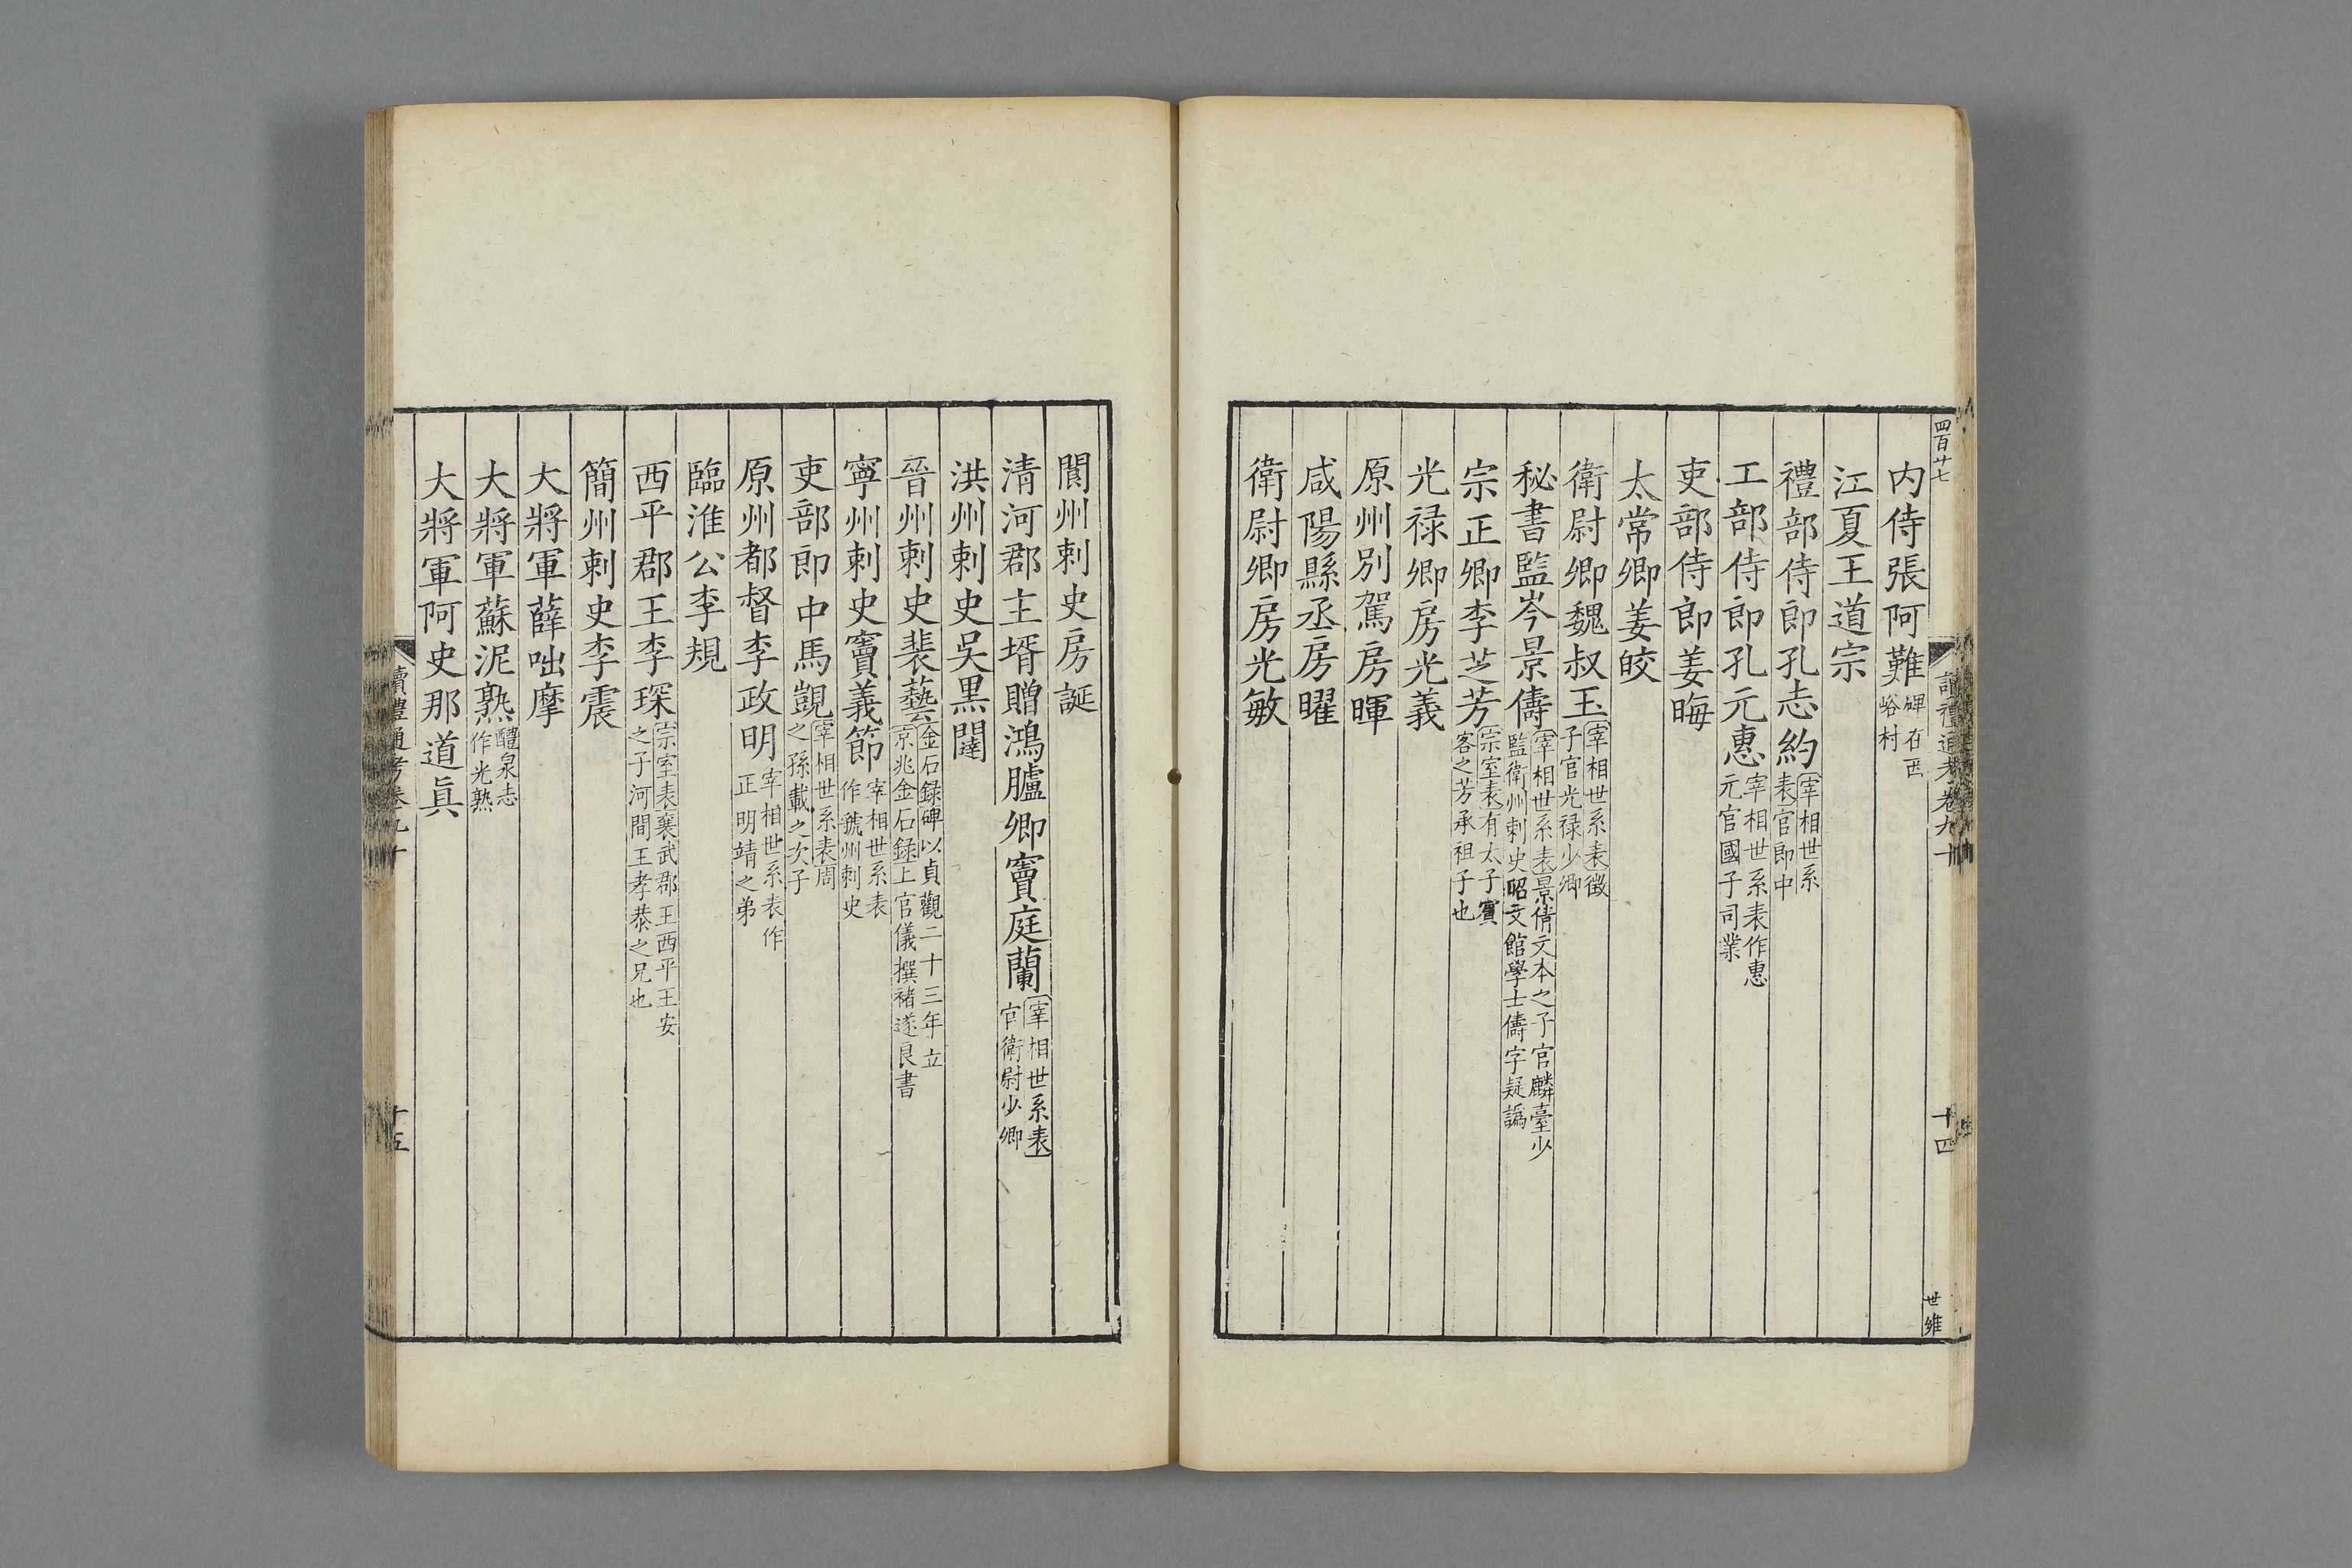 四百廿七
內侍張阿難碑在西峪村
江夏王道宗
禮部侍郎孔志約宰相世系表官郎中
工部侍郎孔元惠宰相世系表作惠元官國子司業
吏部侍郎姜晦
太常卿姜皎
衛尉卿魏叔玉宰相世系表徵子官光祿少卿
秘書監岑景儔宰相世系表景倩文本之子官麟臺少監衛州刺史昭文館學士儔字疑譌
宗正卿李芝芳宗室表有太子賓客之芳承祖子也
光祿卿房光義
原州別駕房暉
咸陽縣丞房曜
衛尉卿房光敏
讀禮通考卷九十
十四
世維
閬州刺史房誕
清河郡主壻贈鴻臚卿竇庭蘭宰相世系表官衛尉少卿
洪州刺史吳黑闥
晉州刺史裴藝金石錄碑以貞觀二十三年立京兆金石錄上官儀撰褚遂良書
寧州刺史竇義節宰相世系表作虢州刺史
吏部郎中馬覬宰相世系表周之孫載之次子
原州都督李政明宰相世系表作正明靖之弟
臨淮公李規
西平郡王李琛宗室表襄武郡王西平王安之子河間王孝恭之兄也
簡州刺史李震
大將軍薛咄摩
大將軍蘇泥熟醴泉志作光熟
大將軍阿史那道眞
讀禮通考卷九十
十五